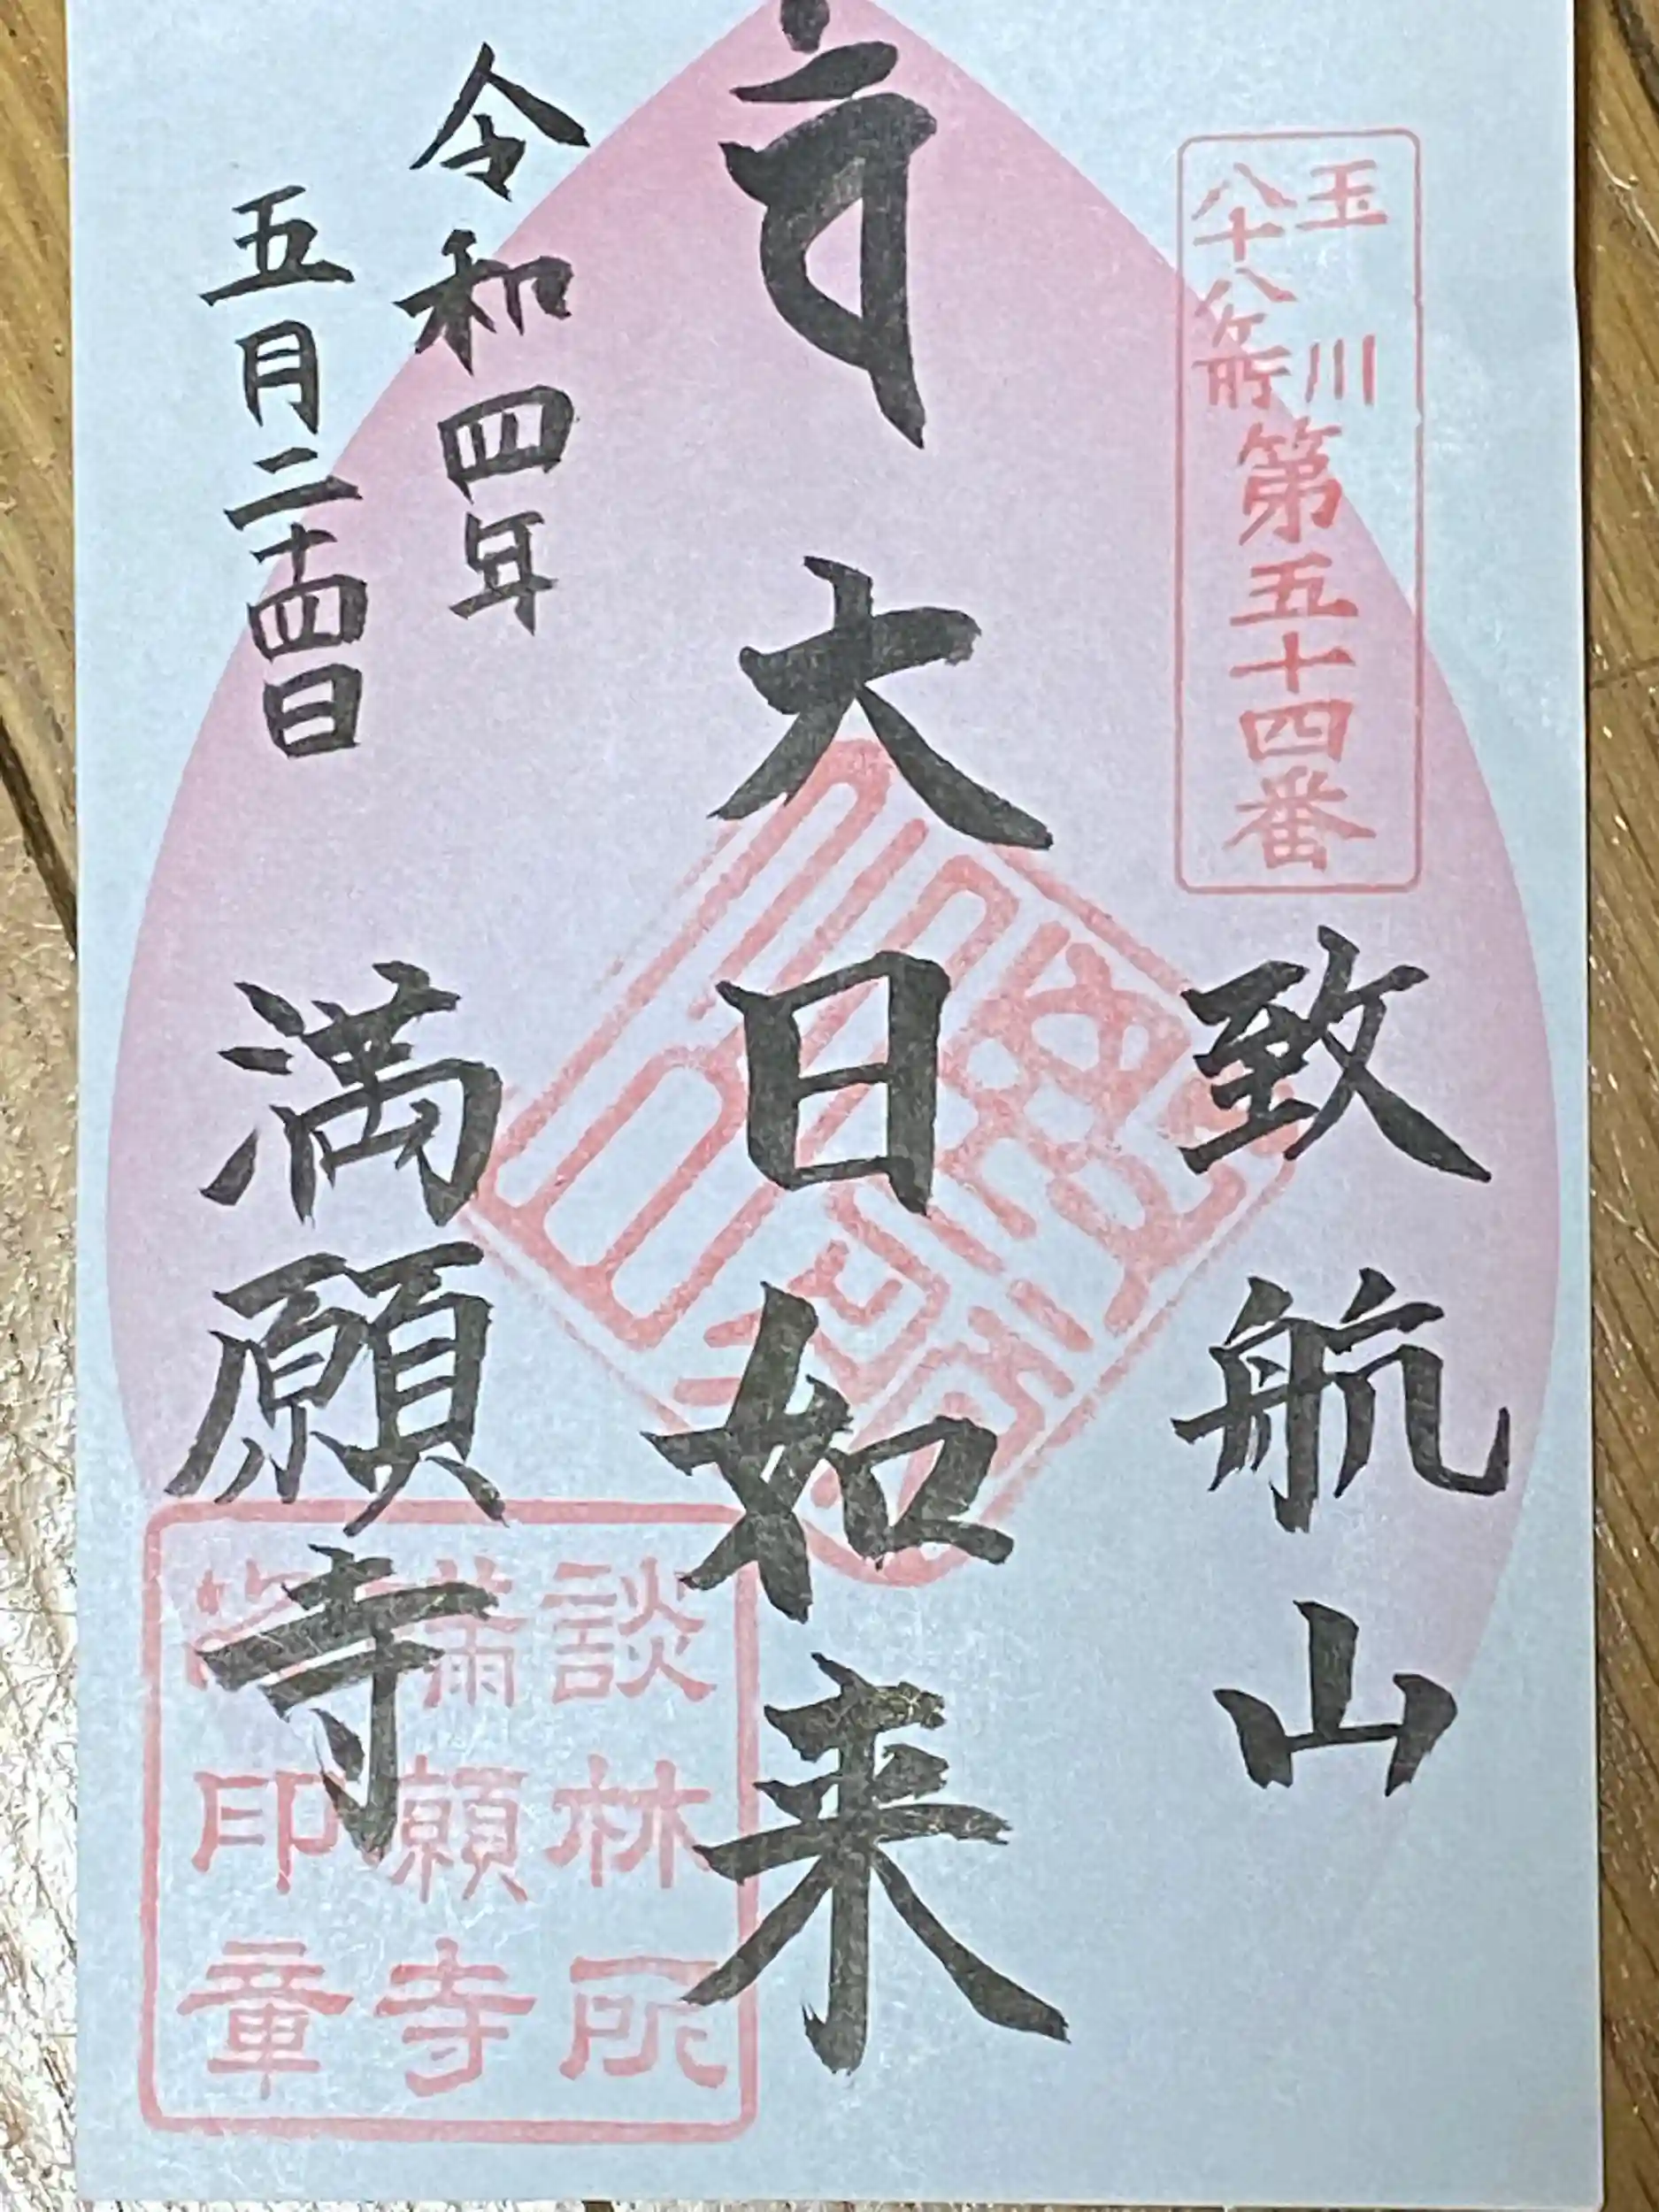 玉川
八十八ケ所
第五十四番
致航山
大日如来
令和四年
五月二十四日
満願寺
談林所
満願寺
印章